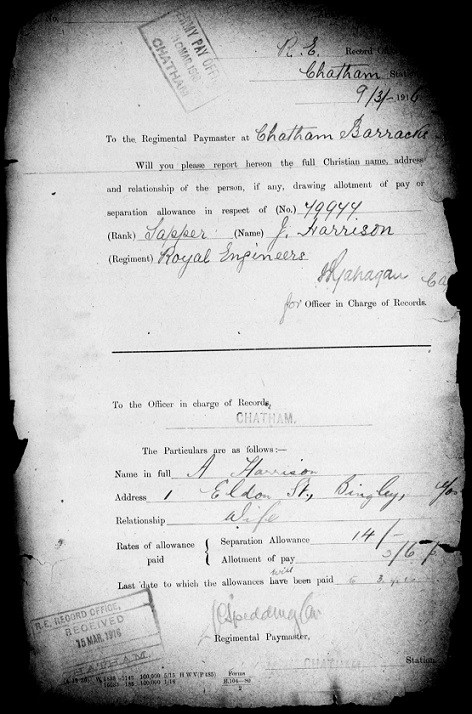 No.
ARMY PAY OFFICE
MAR. 1916
CHATHAM
R. E. Record Office
Chatham Station
9/3/- 1916
To the Regimental Paymaster at Chatham Barracks
Will you please report hereon the full Christian name, address
and relationship of the person, if any, drawing allotment of pay or
separation allowance in respect of (No.) 49944
(Rank) Sapper (Name) J. Harrison
(Regiment) Royal Engineers
for Officer in Charge of Records.
To the Officer in charge of Records,
CHATHAM.
The Particulars are as follows:—
Name in full A Harrison
Address 1 Eldon St., Bingley,
Relationship Wife
Rates of allowance paid { Separation Allowance 14/-
Allotment of pay 3/6
will
Last date to which the allowances have been paid
Regimental Paymaster,
CHATHAM Station
R.E. RECORD OFFICE,
RECEIVED
15 MAR. 1916
CHATHAM
H W V(P 485) Forms